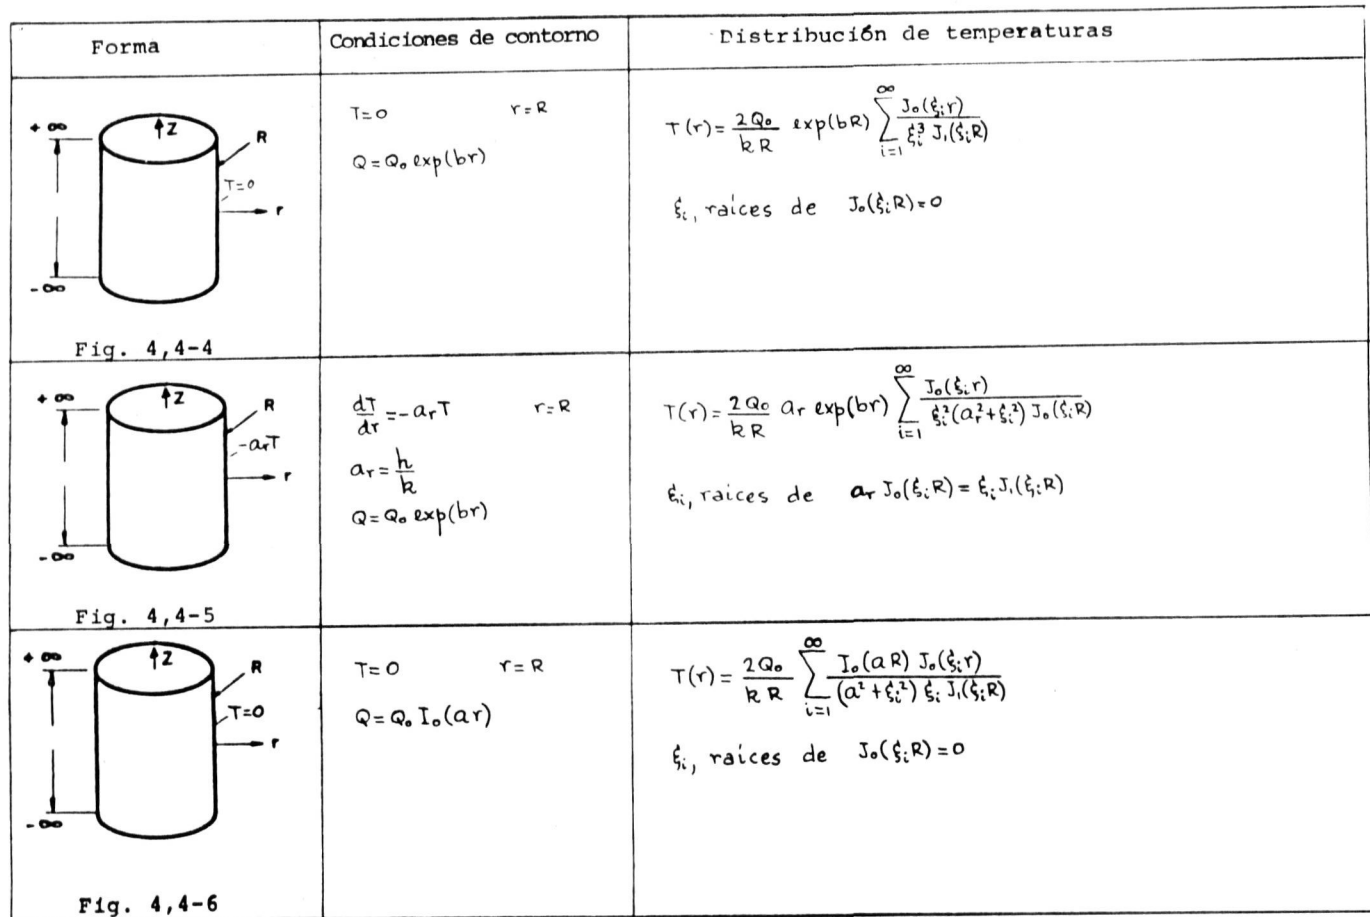 Forma
Condiciones de contorno
Distribución de temperaturas
+ ∞
Z
R
T=0
r
- ∞
Fig. 4,4-4
T=0 r=R
Q=Q₀ exp(br)
T(r)= 2Q₀/kR exp(bR) ∑_{i=1}^{∞} J₀(ξᵢr)/ξᵢ³ J₁(ξᵢR)
ξᵢ, raíces de J₀(ξᵢR)=0
+ ∞
Z
R
-aᵣT
r
- ∞
Fig. 4,4-5
dT/dr =-aᵣT r=R
aᵣ= h/k
Q=Q₀ exp(br)
T(r)= 2Q₀/kR aᵣ exp(br) ∑_{i=1}^{∞} J₀(ξᵢr)/ξᵢ²(aᵣ²+ξᵢ²) J₀(ξᵢR)
ξᵢ, raices de aᵣ J₀(ξᵢR)= ξᵢ J₁(ξᵢR)
+ ∞
Z
R
T=0
r
- ∞
Fig. 4,4-6
T=0 r=R
Q=Q₀ I₀(ar)
T(r)= 2Q₀/kR ∑_{i=1}^{∞} I₀(aR) J₀(ξᵢr)/(a²+ξᵢ²) ξᵢ J₁(ξᵢR)
ξᵢ, raices de J₀(ξᵢR)=0